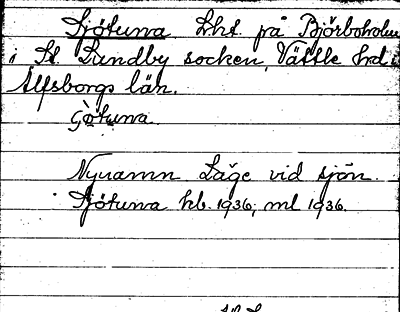 Sjötuna Lht. på Björboholm
i St. Lundby socken, Vättle hd i
Älfsborgs län.
Götuna.
Nynamn Läge vid sjön.
Sjötuna hb. 1936; ml 1936.